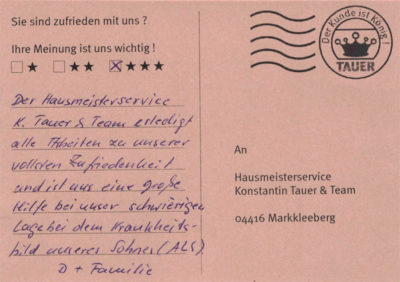 Sie sind zufrieden mit uns ?
Ihre Meinung ist uns wichtig !
★ ★★ ☒★★★
Der Hausmeisterservice
K. Tauer & Team erledigt
alle Arbeiten zu unserer
vollsten Zufriedenheit
und ist uns eine große
Hilfe bei unser schwierigen
Lage bei dem Krankheits-
bild unseres Sohnes (ALS)
D + Familie
Der Kunde ist König !
TAUER
An
Hausmeisterservice
Konstantin Tauer & Team
04416 Markkleeberg